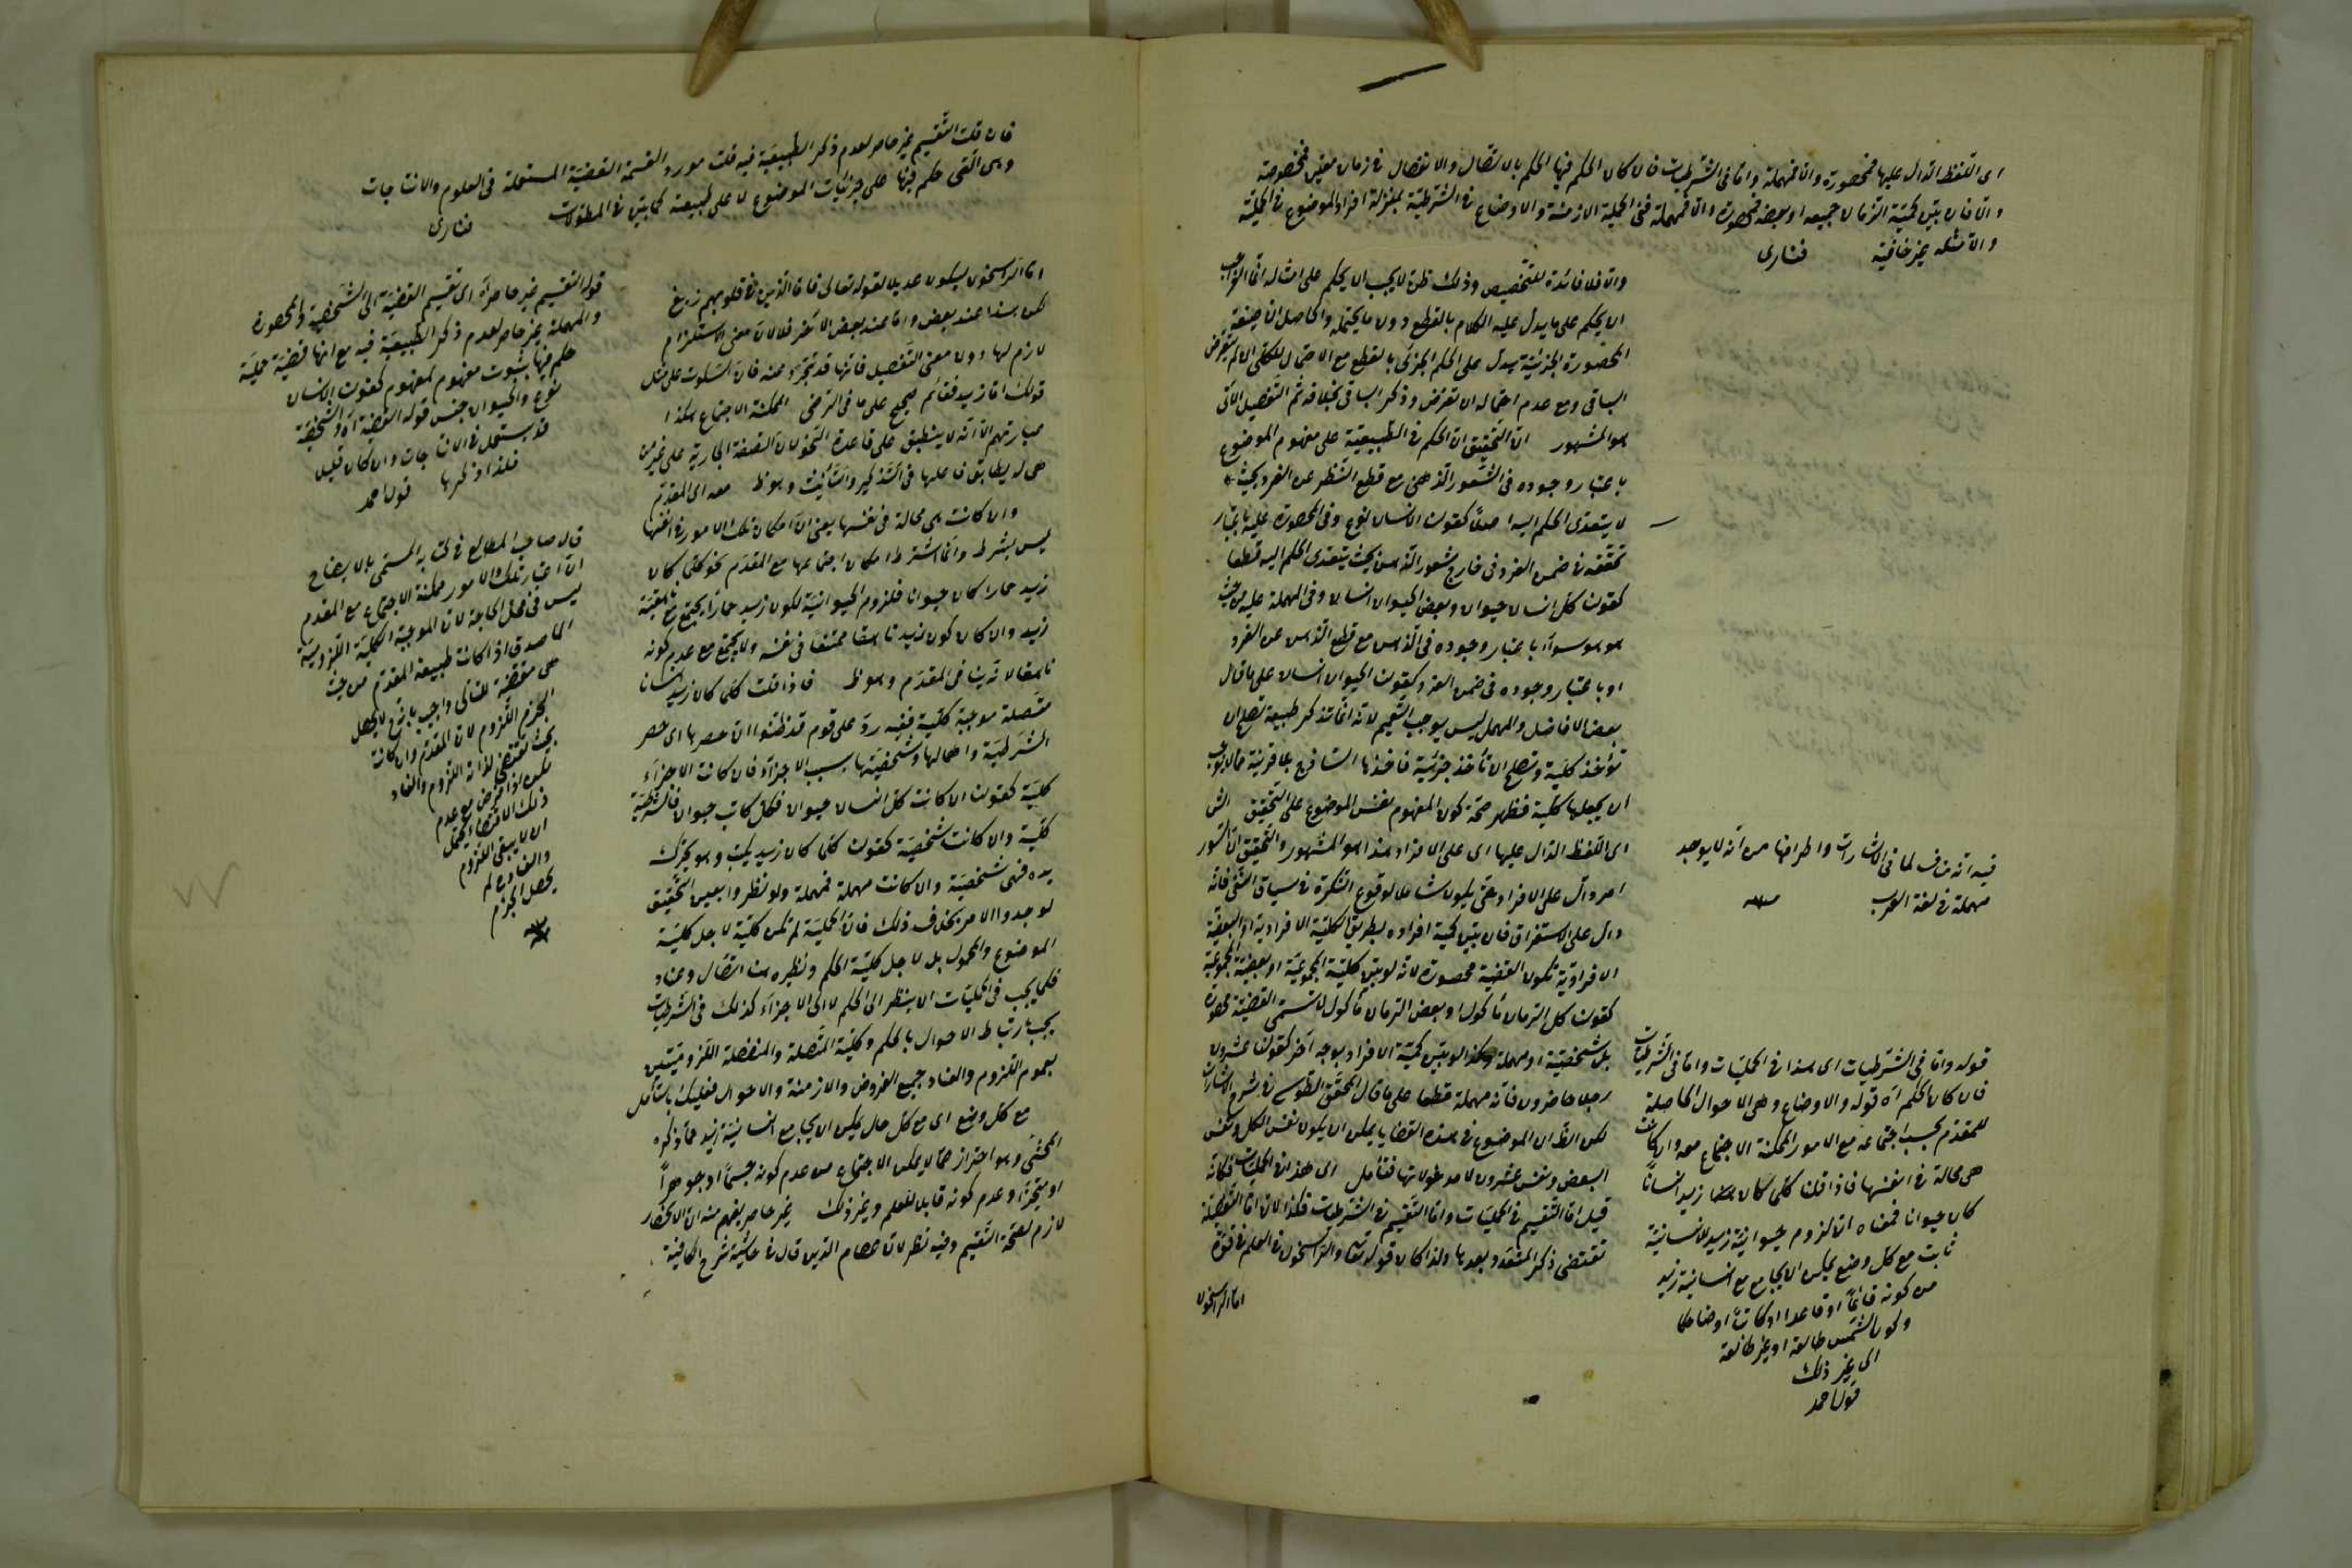 اى اللفظ الدال عليها فمحصورة واما مهملة واما فى الشرطيات فان كان الحكم فيها الحكم بالاتصال والانفصال فى زمان معين فمخصوصة
والا فان بين كمية الزمان جميعه او بعضه فمحصورة والا فمهملة ففى الحملية الازمنة والاوضاع فى الشرطية بمنزلة افراد الموضوع فى الحملية
والامثلة غير خافية فنارى
والا فلا فائدة للتخصيص وذلك لانه لا يجب ان يحكم على امثاله انما الواجب
ان يحكم على ما يدل عليه الكلام بالقطع دون ما يحتمله والحاصل ان صيغة
المحصورة الجزئية يدل على الحكم الجزئى بالقطع مع الاحتمال للكلى ان لم يتعرض
الباقى ومع عدم احتماله ان تعرض وذكر الباقى بخلافه ثم التفصيل الآتى
هو المشهور ان التحقيق ان الحكم فى الطبيعية على مفهوم الموضوع
باعتبار وجوده فى الشعور الذهنى مع قطع النظر عن الفرد بحيث
لا يتعدى الحكم اليه اصلا كقولنا الانسان نوع وفى المحصورة عليه باعتبار
تحققه فى ضمن الفرد فى خارج شعور الذهن بحيث يتعدى الحكم اليه قطعا
كقولنا كل انسان حيوان وبعض الحيوان انسان وفى المهملة عليه من حيث
هو هو سواء باعتبار وجوده فى الذهن مع قطع الذهن عن الفرد
او باعتبار وجوده فى ضمن الفرد كقولنا الحيوان انسان على ما قال
بعض الافاضل والمهمل ليس يوجب التعميم لانه انما تذكر طبيعة تصلح ان
تؤخذ كلية وتصلح ان تأخذ جزئية فاخذها الشافى بلا قرينة مما لا يوجب
ان يجعلها كلية فظهر صحة كون المفهوم نفس الموضوع على التحقيق
اى اللفظ الدال عليها اى على الافراد هذا هو المشهور والتحقيق ان السور
امر دال على الافراد حتى يكون شاملا لوقوع النكرة فى سياق النفى فانه
دال على الاستغراق فان بين كمية افراده بطريق الكلية الافرادية او البعضية
الافرادية تكون القضية محصورة لانه لو بين كلية المجموعية او بعضية المجموعية
كقولنا كل الرمان مأكول او بعض الرمان مأكول لا تسمى القضية محصورة
بل شخصية او مهملة وكذا لو بين كمية الافراد بوجه آخر كقولنا عشرون
رجلا حاضرون فانه مهملة قطعا على ما قال المحقق الطوسى فى شرح الاشارات
لكن الظ ان الموضوع فى هذه القضايا يمكن ان يكون نفس الكل ونفس
البعض ونفس عشرون لا مدخولاتها فتأمل اى هذا فى الحمليات فكانه
قيل اما التقسيم فى الحمليات واما التقسيم فى الشرطيات فكذا لان اما التفصيلة
تقتضى ذكر المتعدد بعدها ولذا كان قوله تعالى والراسخون فى العلم فى قوة
اما الراسخون
فيه انه مناف لما فى الاشارات واطرافها من انه لا يوجد
مهملة فى لغة العرب منه
قوله واما فى الشرطيات اى هذا فى الحمليات واما فى الشرطيات
فان كان الحكم آه قوله والاوضاع وهى الاحوال الحاصلة
للمقدم بحسب اجتماعه مع الامور الممكنة الاجتماع معه وان كانت
هى محالة فى انفسها فاذا قلنا كلما كان زيد انسانا
كان حيوانا فمعناه ان لزوم حيوانية زيد لانسانية
ثابت مع كل وضع يمكن ان يجامع مع انسانية زيد
من كونه قائما او قاعدا او كاتبا او ضاحكا
وكون الشمس طالعة او غير طالعة
الى غير ذلك
قول احمد
فان قلت التقسيم غير حاصر لعدم ذكر الطبيعية فيه قلت مورد القسمة القضية المستعملة فى العلوم والانتاجات
وهى التى حكم فيها على جزئيات الموضوع لا على طبيعته كما بين فى المطولات فنارى
اما الراسخون ليكون عديلا لقوله تعالى فاما الذين فى قلوبهم زيغ
لكن هذا عند بعض واما عند بعض الآخر فلا لان معنى الاستلزام
لازم لها دون معنى التفصيل فانها قد تتجرد عنه فان السكوت على مثل
قولك اما زيد فقائم صحيح على ما فى الرضى الممكنة الاجتماع هكذا
عبارتهم الا انه لا ينطبق على قاعدة النحو لان الصفة الجارية على غير من
هى له يطابق فاعلها فى التذكير والتأنيث وهو ظ معه اى المقدم
وان كانت هى محالة فى نفسها يعنى ان امكان تلك الامور فى انفسها
ليس بشرط وانما اشترط امكان اجتماعها مع المقدم نحو كلما كان
زيد حمارا كان حيوانا فلزوم الحيوانية لكون زيد حمارا يجتمع مع ناهقية
زيد وان كان كون زيد ناهقا ممتنعا فى نفسه ولا يجتمع مع عدم كونه
ناهقا لانه ينافى المقدم وهو ظ فاذا قلت كلما كان زيد انسانا
متصلة موجبة كلية ففيه رد على قوم قد ظنوا ان حصرها اى حصر
الشرطية واهمالها وشخصيتها بسبب الاجزاء فان كانت الاجزاء
كلية كقولنا ان كانت كل انسان حيوان فكل كاتب حيوان فالشرطية
كلية وان كانت شخصية كقولنا كلما كان زيد يكتب وهو يحرك
يده فهى شخصية وان كانت مهملة فمهملة ولو نظروا بعين التحقيق
لوجدوا الامر بخلاف ذلك فان الحملية لم تكن كلية لاجل كلية
الموضوع والمحمول بل لاجل كلية الحكم ونظيره هنا اتصال وعناد
فكما يجب فى الحمليات ان ينظر الى الحكم لا الى الاجزاء كذلك فى الشرطيات
يجب ارتباط الاحوال بالحكم وكلية المتصلة والمنفصلة اللزوميتين
بعموم اللزوم والعناد جميع الفروض والازمنة والاحوال فعليك بالتأمل
مع كل وضع اى مع كل حال يمكن ان يجامع انسانية زيد مما ذكره
المحشى وهو احتراز عما لا يمكن الاجتماع من عدم كونه جسما او جوهرا
او متحيزا وعدم كونه قابلا للعلم وغير ذلك غير حاصر يفهم منه ان الانحصار
لازم لصحة التقسيم وفيه نظر لان عصام الدين قال فى حاشية شرح الكافية
قوله التقسيم غير حاصر آه اى تقسيم القضية الى الشخصية والمحصورة
والمهملة غير حاصر لعدم ذكر الطبيعية فيه مع انها قضية حملية
حكم فيها بثبوت مفهوم لمفهوم كقولنا الانسان
نوع والحيوان جنس قوله القضية آه والشخصية
قد يستعمل فى الانتاجات وان كان قليل
فلذا ذكرها قول احمد
قال صاحب المطالع فى كتابه المسمى بالايضاح
ان اعتبار تلك الامور ممكنة الاجتماع مع المقدم
ليس فى محل الحاجة لان الموجبة الكلية اللزومية
الما صدق اذا كانت طبيعة المقدم من حيث
هى مقتضية للتالى واجيب بانه لا يحصل
الجزم اللزوم لان المقدم وان كانت
بحيث تقتضى لذاته اللزوم والعناد
لكن اذا فرض مع عدم
ذلك الاقتضاء يحتمل
ان لا يبقى اللزوم
والعناد فلم
يحصل الجزم
منه